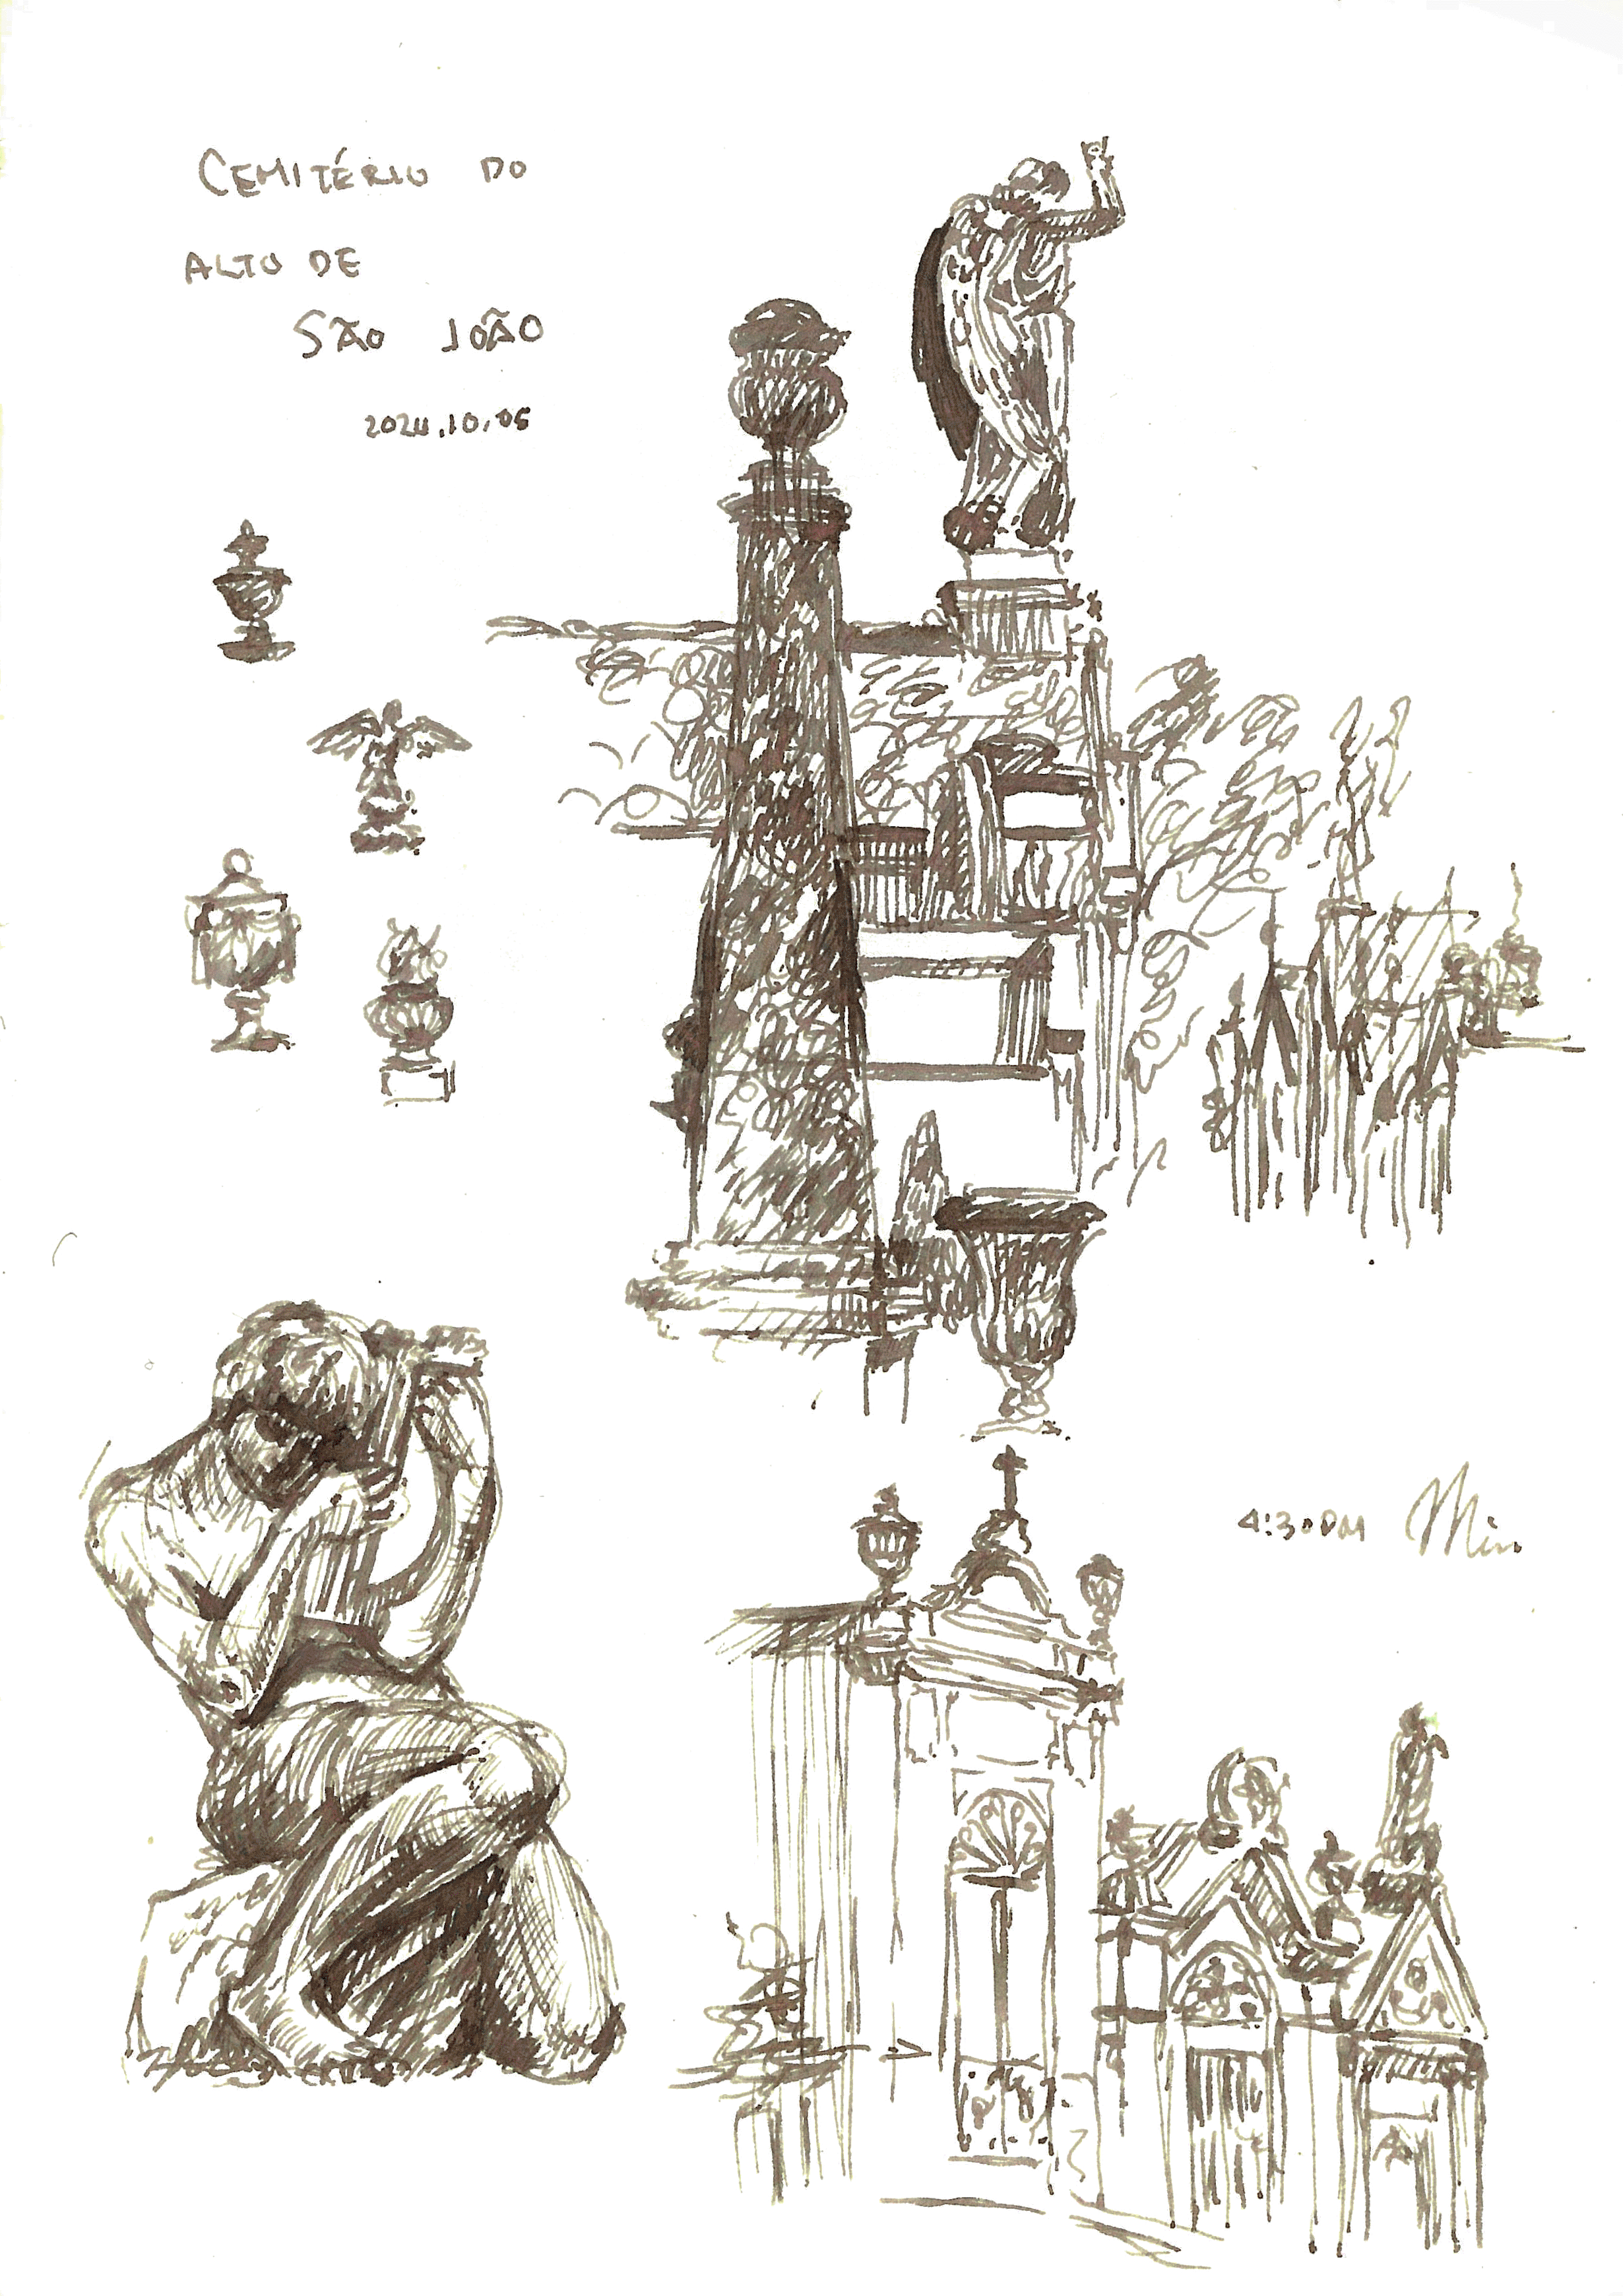 CEMITÉRIO DO
ALTO DE
SÃO JOÃO
2024.10.05
4:30PM Min